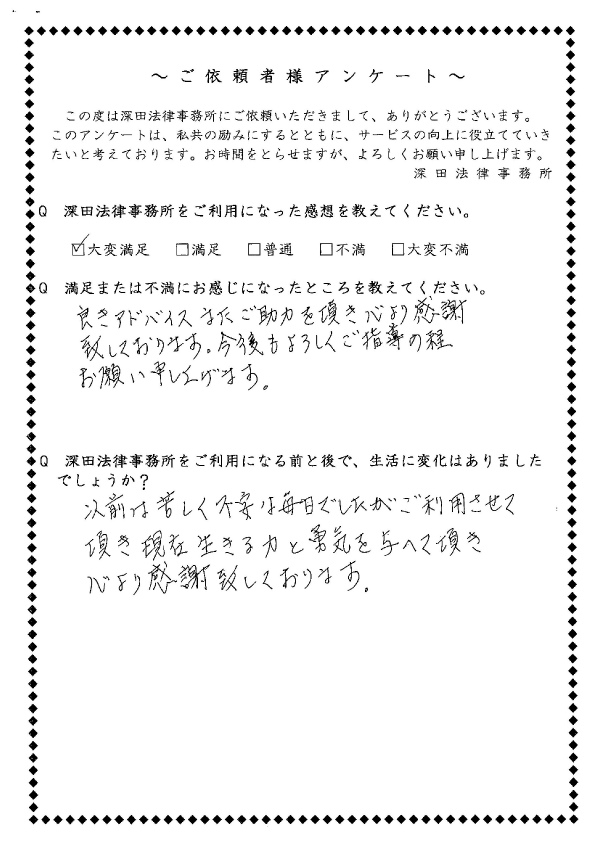 ～ご依頼者様アンケート～
この度は深田法律事務所にご依頼いただきまして、ありがとうございます。
このアンケートは、私共の励みにするとともに、サービスの向上に役立てていき
たいと考えております。お時間をとらせますが、よろしくお願い申し上げます。
深田法律事務所
Q 深田法律事務所をご利用になった感想を教えてください。
☑大変満足 □満足 □普通 □不満 □大変不満
Q 満足または不満にお感じになったところを教えてください。
良きアドバイスまたご助力を頂き心より感謝
致しております。今後もよろしくご指導の程
お願い申し上げます。
Q 深田法律事務所をご利用になる前と後で、生活に変化はありました
でしょうか？
以前は苦しく不安な毎日でしたがご利用させて
頂き現在生きる力と勇気を与へて頂き
心より感謝致しております。